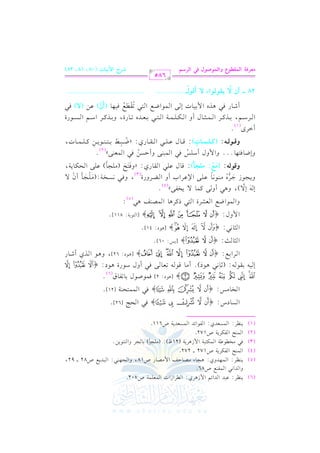 معرفة المقطوع والموصول في الرسم
شرح الأبيات
٥٨٦
٨٢ - أن يقولوا، لا أقول
أشار في هذه الأبيات إلى المواضع التي تُقطَعُ فيها (أن) عن (لا) في
الرسم، بذكر المثال أو الكلمة التي بعده تارة، وبذكر اسم السورة
أخرى
وقوله: (كلمات): قال علي القاري: «ضُبِطَ بتنوين كلمات،
وإضافتها ... والأول أسلس في المبنى وأحسن في المعنى»
وقوله: (مَعْ: ملجأ): قال علي القاري: «بفتح (ملجأ) على الحكاية،
ويجوز جره منوناً على الإعراب أو الضرورة، وفي نسخة: (ملجأ أن لا
إله إلا)، وهي أولى كما لا يخفى»
والمواضع العشرة التي ذكرها المصنف هي
الأول: ﴿أَن لَّا مَلْجَأَ مِنَ اللَّهِ إِلَّا إِلَيْهِ﴾ [التوبة: ١١٨].
الثاني: ﴿وَأَن لَّا إِلَٰهَ إِلَّا هُوَ﴾ [هود: ١٤].
الثالث: ﴿أَن لَّا تَعْبُدُوا﴾ [يس: ٦٠].
الرابع: ﴿أَن لَّا تَعْبُدُوا إِلَّا اللَّهَ إِنِّي أَخَافُ﴾ [هود: ٢٦]، وهو الذي أشار
إليه بقوله: (ثاني هود). أما قوله تعالى في أول سورة هود: ﴿أَلَّا تَعْبُدُوا إِلَّا
اللَّهَ إِنَّنِي لَكُم مِّنْهُ نَذِيرٌ وَبَشِيرٌ﴾ [هود: ٢] فموصول باتفاق
الخامس: ﴿أَن لَّا يُشْرِكْنَ بِاللَّهِ شَيْئًا﴾ في الممتحنة [١٢].
السادس: ﴿أَن لَّا تُشْرِكْ بِي شَيْئًا﴾ في الحج [٢٦].
(١) ينظر: المسعدي: الفوائد المسعدية ص١١٦.
(٢) المنح الفكرية ص٢٧١.
(٣) في مخطوطة المكتبة الأزهرية (١٢ظ): (ملجأ) بالجر والتنوين.
(٤) المنح الفكرية ص٢٧١ ـ ٢٧٢.
(٥) ينظر: المهدوي: هجاء مصاحف الأمصار ص٨١، والجهني: البديع ص٢٨ ـ ٢٩،
والداني المقنع ص٦٨.
(٦) ينظر: عبد الدائم الأزهري: الطرازات المعلمة ص٢٠٧.